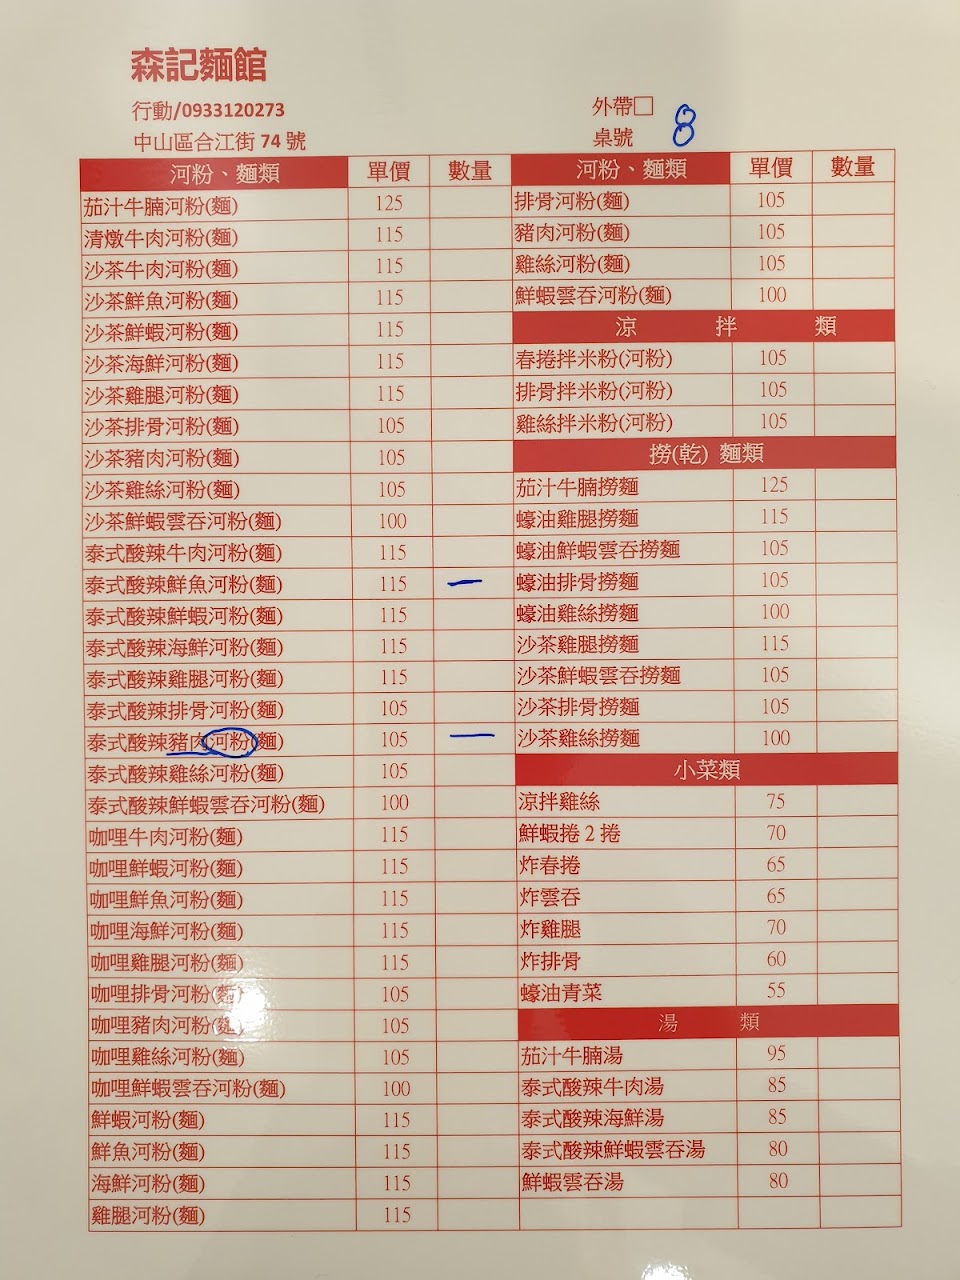 森記麵館
行動/0933120273
中山區合江街 74 號
外帶□
桌號 8
河粉、麵類 單價 數量
茄汁牛腩河粉(麵) 125
清燉牛肉河粉(麵) 115
沙茶牛肉河粉(麵) 115
沙茶鮮魚河粉(麵) 115
沙茶鮮蝦河粉(麵) 115
沙茶海鮮河粉(麵) 115
沙茶雞腿河粉(麵) 115
沙茶排骨河粉(麵) 105
沙茶豬肉河粉(麵) 105
沙茶雞絲河粉(麵) 105
沙茶鮮蝦雲吞河粉(麵) 100
泰式酸辣牛肉河粉(麵) 115
泰式酸辣鮮魚河粉(麵) 115 一
泰式酸辣鮮蝦河粉(麵) 115
泰式酸辣海鮮河粉(麵) 115
泰式酸辣雞腿河粉(麵) 115
泰式酸辣排骨河粉(麵) 105
泰式酸辣豬肉河粉(麵) 105 一
泰式酸辣雞絲河粉(麵) 105
泰式酸辣鮮蝦雲吞河粉(麵) 100
咖哩牛肉河粉(麵) 115
咖哩鮮蝦河粉(麵) 115
咖哩鮮魚河粉(麵) 115
咖哩海鮮河粉(麵) 115
咖哩雞腿河粉(麵) 115
咖哩排骨河粉(麵) 105
咖哩豬肉河粉(麵) 105
咖哩雞絲河粉(麵) 105
咖哩鮮蝦雲吞河粉(麵) 100
鮮蝦河粉(麵) 115
鮮魚河粉(麵) 115
海鮮河粉(麵) 115
雞腿河粉(麵) 115
河粉、麵類 單價 數量
排骨河粉(麵) 105
豬肉河粉(麵) 105
雞絲河粉(麵) 105
鮮蝦雲吞河粉(麵) 100
涼 拌 類
春捲拌米粉(河粉) 105
排骨拌米粉(河粉) 105
雞絲拌米粉(河粉) 105
撈(乾) 麵類
茄汁牛腩撈麵 125
蠔油雞腿撈麵 115
蠔油鮮蝦雲吞撈麵 105
蠔油排骨撈麵 105
蠔油雞絲撈麵 100
沙茶雞腿撈麵 115
沙茶鮮蝦雲吞撈麵 105
沙茶排骨撈麵 105
沙茶雞絲撈麵 100
小菜類
涼拌雞絲 75
鮮蝦捲 2 捲 70
炸春捲 65
炸雲吞 65
炸雞腿 70
炸排骨 60
蠔油青菜 55
湯 類
茄汁牛腩湯 95
泰式酸辣牛肉湯 85
泰式酸辣海鮮湯 85
泰式酸辣鮮蝦雲吞湯 80
鮮蝦雲吞湯 80